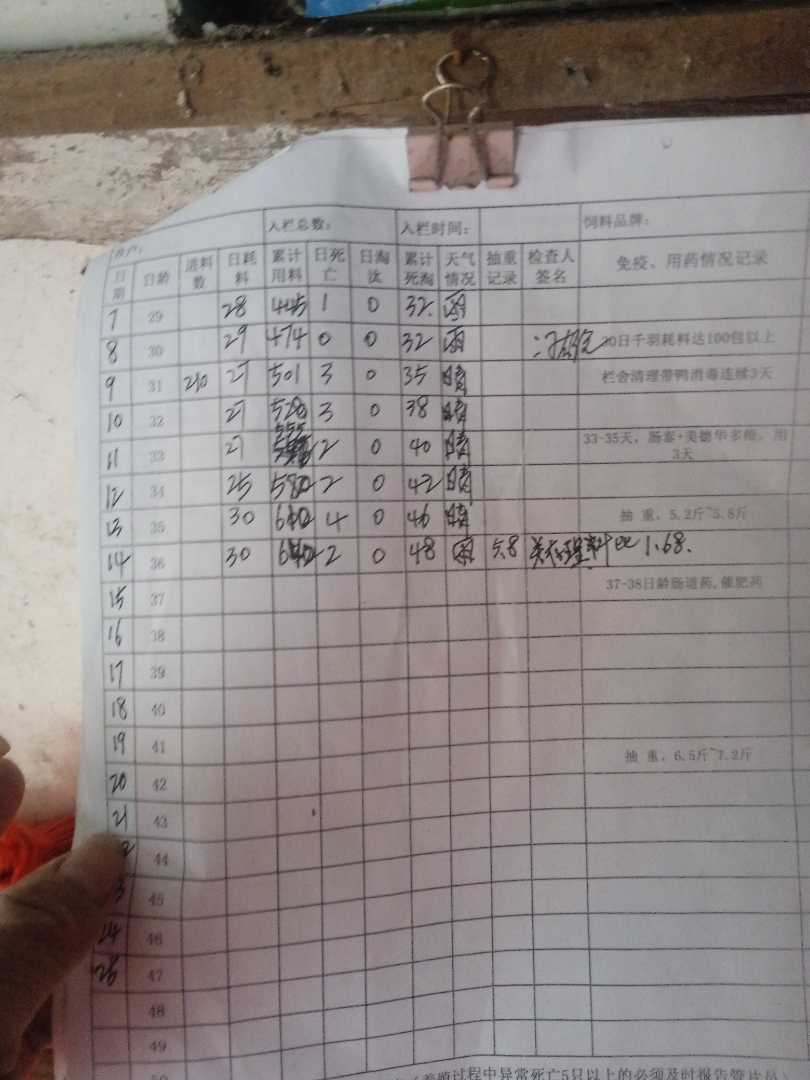 养户: 入栏总数: 入栏时间: 饲料品牌:
日期 日龄 进料数 日耗料 累计用料 日死亡 日淘汰 累计死淘 天气情况 抽重记录 检查人签名 免疫、用药情况记录
7 29 28 445 1 0 32 雨
8 30 29 474 0 0 32 雨 30日千羽耗料达100包以上
9 31 210 27 501 3 0 35 晴 栏舍清理带鸭消毒连续3天
10 32 27 528 3 0 38 晴
11 33 27 555 2 0 40 晴 33-35天，肠泰+美德华多维，用3天
12 34 25 580 2 0 42 晴
13 35 30 610 4 0 46 晴 抽 重，5.2斤~5.8斤
14 36 30 640 2 0 48 雨 5.8 料比 1.68.
15 37 37-38日龄肠道药,催肥药
16 38
17 39
18 40
19 41 抽 重，6.5斤~7.2斤
20 42
21 43
44
45
24 46
47
48
49
养殖过程中异常死亡5只以上的必须及时报告管片员)